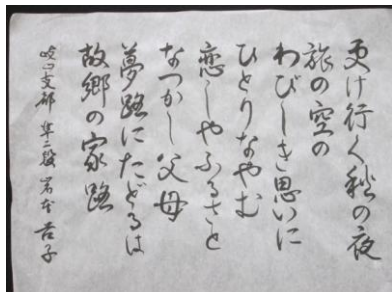 更け行く秋の夜
旅の空の
わびしき思いに
ひとりなやむ
恋しやふるさと
なつかし父母
夢路にたどるは
故郷の家路
支部 準二段